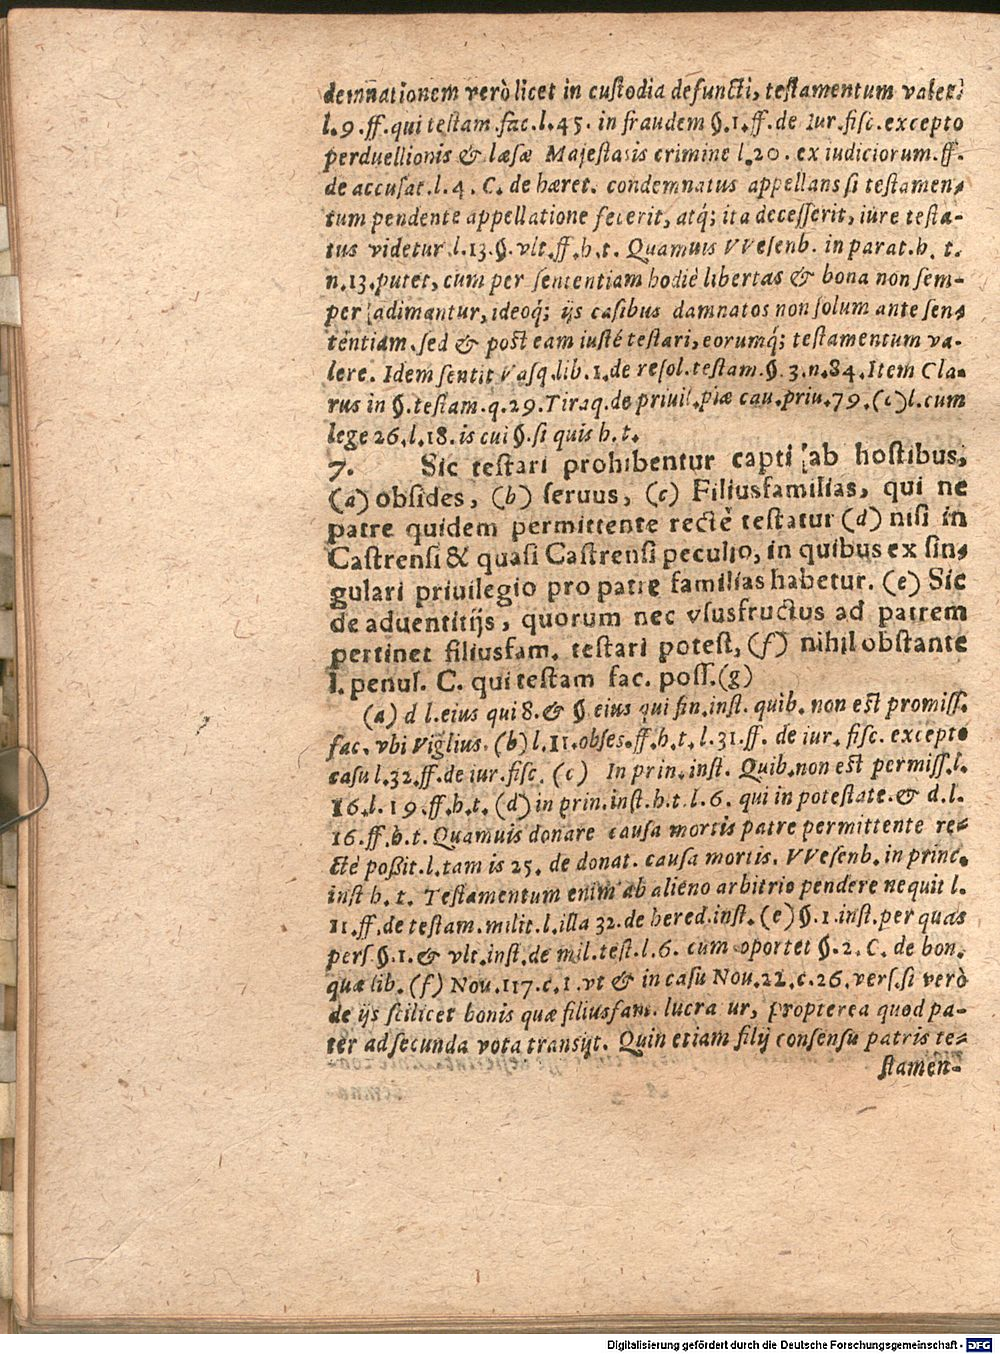 demnationem verò licet in custodia defuncti, testamentum valet.
l.9. ff. qui testam. fac. l.45. in fraudem §.1. ff. de Iur. fisc. excepto
perduellionis & læsæ Majestatis crimine l.20. ex iudiciorum. ff.
de accusat. l.4. C. de hæret. condemnatus appellans si testamen-
tum pendente appellatione fecerit, atq; ita decesserit, iure testa-
tus videtur. l.13. §. vlt. ff. h. t. Quamuis VVesenb. in parat. h. t.
n.13. putet, cum per sententiam hodiè libertas & bona non sem-
per adimantur, ideoq; ijs casibus damnatos non solum ante sen-
tentiam, sed & post eam iustè testari, eorumq́; testamentum va-
lere. Idem sentit Vasq. lib.1. de resol. testam. §. 3. n.84. Item Cla-
rus in §. testam. q.29. Tiraq. de priuil. piæ cau. priu. 79. (c) l. cum
lege 26. l.18. is cui §. si quis h. t.
7. Sic testari prohibentur capti ab hostibus,
(a) obsides, (b) seruus, (c) Filiusfamilias, qui ne
patre quidem permittente rectè testatur (d) nisi in
Castrensi & quasi Castrensi peculio, in quibus ex sin-
gulari priuilegio pro patre familias habetur. (e) Sic
de aduentitijs, quorum nec vsusfructus ad patrem
pertinet filiusfam. testari potest, (f) nihil obstante
l. penul. C. qui testam fac. poss. (g)
(a) d l. eius qui 8. & § eius qui fin. inst. quib. non est promiss.
fac. vbi Viglius. (b) l.11. obses. ff. h. t. l.31. ff. de iur. fisc. excepto
casu l.32. ff. de iur. fisc. (c) In prin. inst. Quib. non est permiss. l.
16. l. 19. ff. h. t. (d) in prin. inst. h. t. l. 6. qui in potestate. & d. l.
16. ff. h. t. Quamuis donare causa mortis patre permittente re-
ctè poßit. l. tam is 25. de donat. causa mortis. VVesenb. in princ.
inst h. t. Testamentum enim ab alieno arbitrio pendere nequit l.
11. ff. de testam. milit. l. illa 32. de hered. inst. (e) §.1. inst. per quas
pers §.1. & vlt. inst. de mil. test. l.6. cum oportet §.2. C. de bon.
quæ lib. (f) Nou. 117. c.1. vt & in casu Nou. 22. c.26. vers. si verò
de ijs scilicet bonis quæ filiusfam. lucra ur, propterea quod pa-
ter ad secunda vota transijt. Quin etiam filij consensu patris te-
stamen-
Digitalisierung gefördert durch die Deutsche Forschungsgemeinschaft - DFG